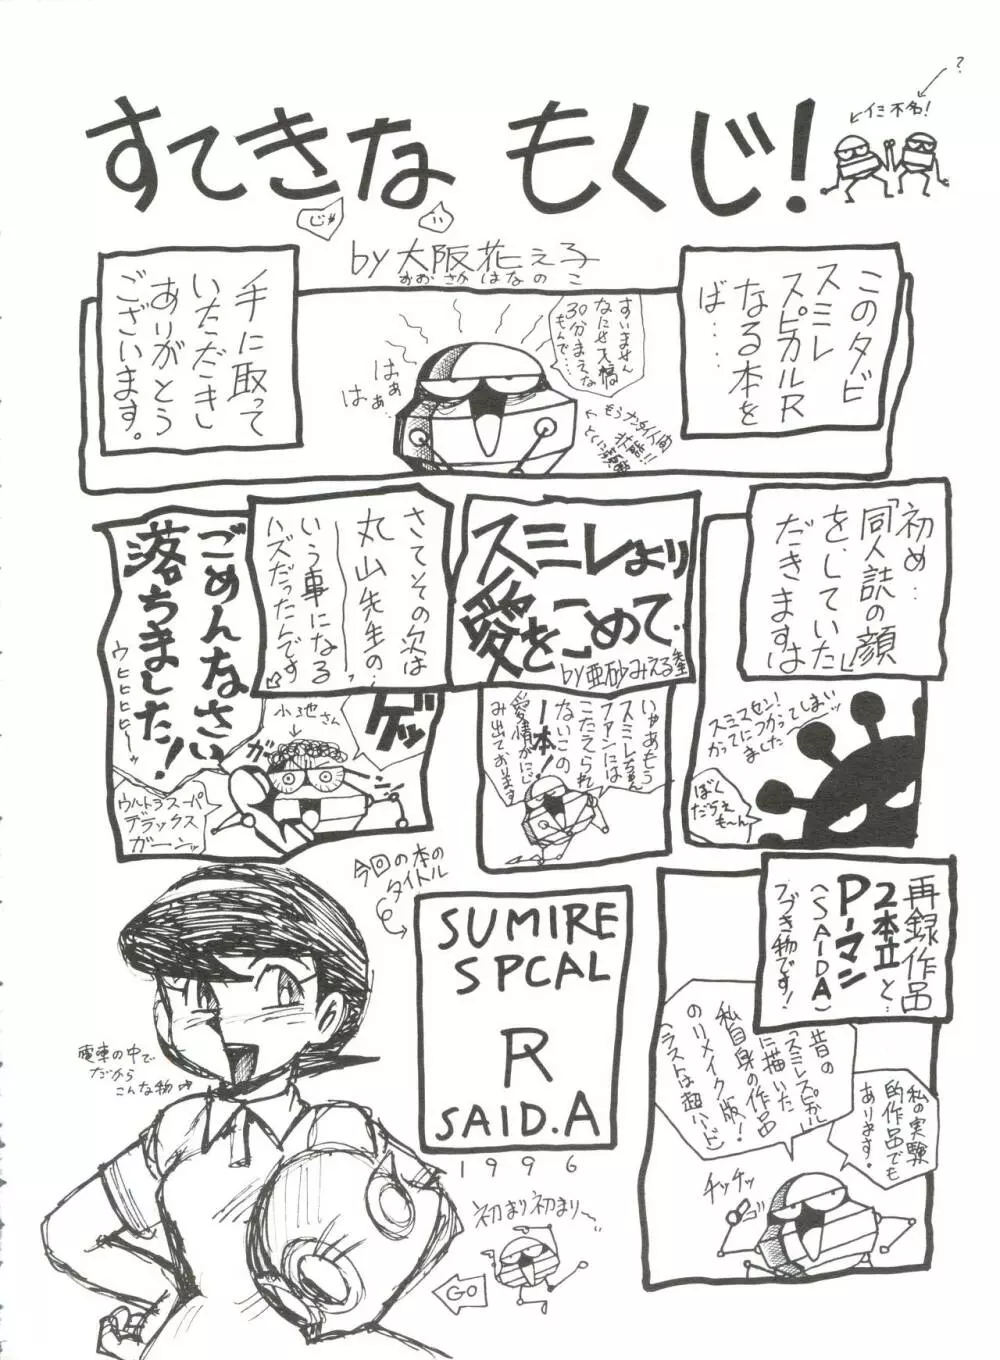 すてきな もくじ!
じゃ
い
?
イミ不名!
by 大阪花え子
おおさか はなのこ
このタビ
スミレ
スピカルR
なる本を
ば…
手に取って
いただきし
ありがとう
ございます。
すいません
なにせ天橋
30分まえな
もんで…
はぁ
はぁ…
もうナンダイ的
状態!!
初め…
「同人誌の顔」
をしていた
だきますは
スミマセン!
かってにつかってしまいッ
ました
ぼく
だらえ
も〜ん
スミレより
愛をこめて.
by 亜砂みえる
いゃあもう
スミレちゃん
ファンには
こたえられ
ないこの
一本!
愛情がにじ
み出ております
さてその次は
丸山先生の…
いう事になる
ハズだったんです
ごめんなさい
落ちました!
ウヒヒヒヒヒー
ゲッ
小池さん
ガー
ン
ウルトラスーパ
デラックス
ガーンッ
再録作品
2本立と…
P-マン
(SAIDA)
つづき物です!
昔の
「スミレスピカル」
に描いた
私自身の作品
のリメイク版!
(ラストは超ハード
私の実験
的作品でも
あります。
チッチッ
今回の本の
タイトル
SUMIRE
SPCAL
R
SAID.A
1996
電車の中で
だから
こんな物
初まり初まり〜
GO